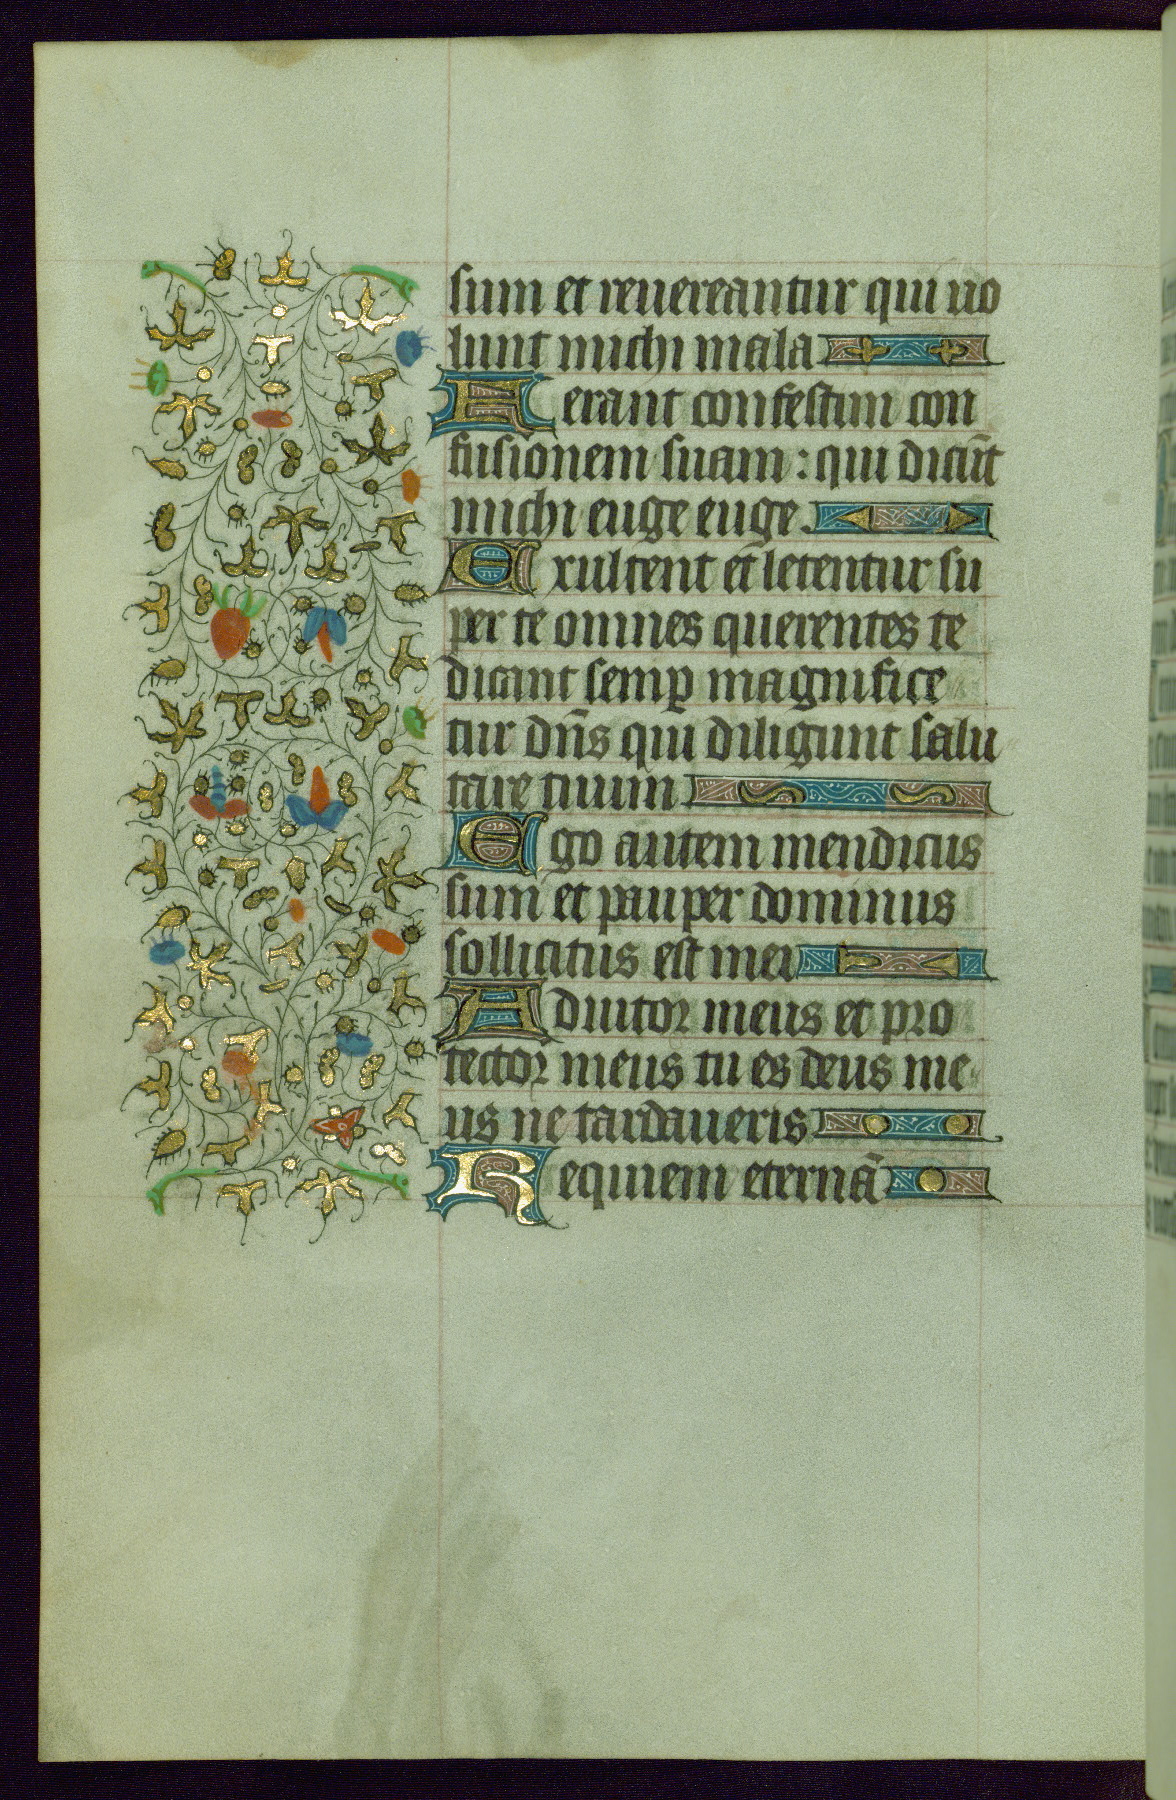 sum et reuereantur qui uo
lunt michi mala
Ferant confestim con
fusionem suam : qui dicūt
michi euge euge.
Exultent et letentur su
per te omnes querentes te
dicant semꝑ magnifice
tur dn̄s qui diligunt salu
tare tuum
Ego autem mendicus
sum et pauper dominus
sollicitus est mei
Adiutor meus et pro
tector meus tu es deus me
us ne tardaueris
Requiem eternā